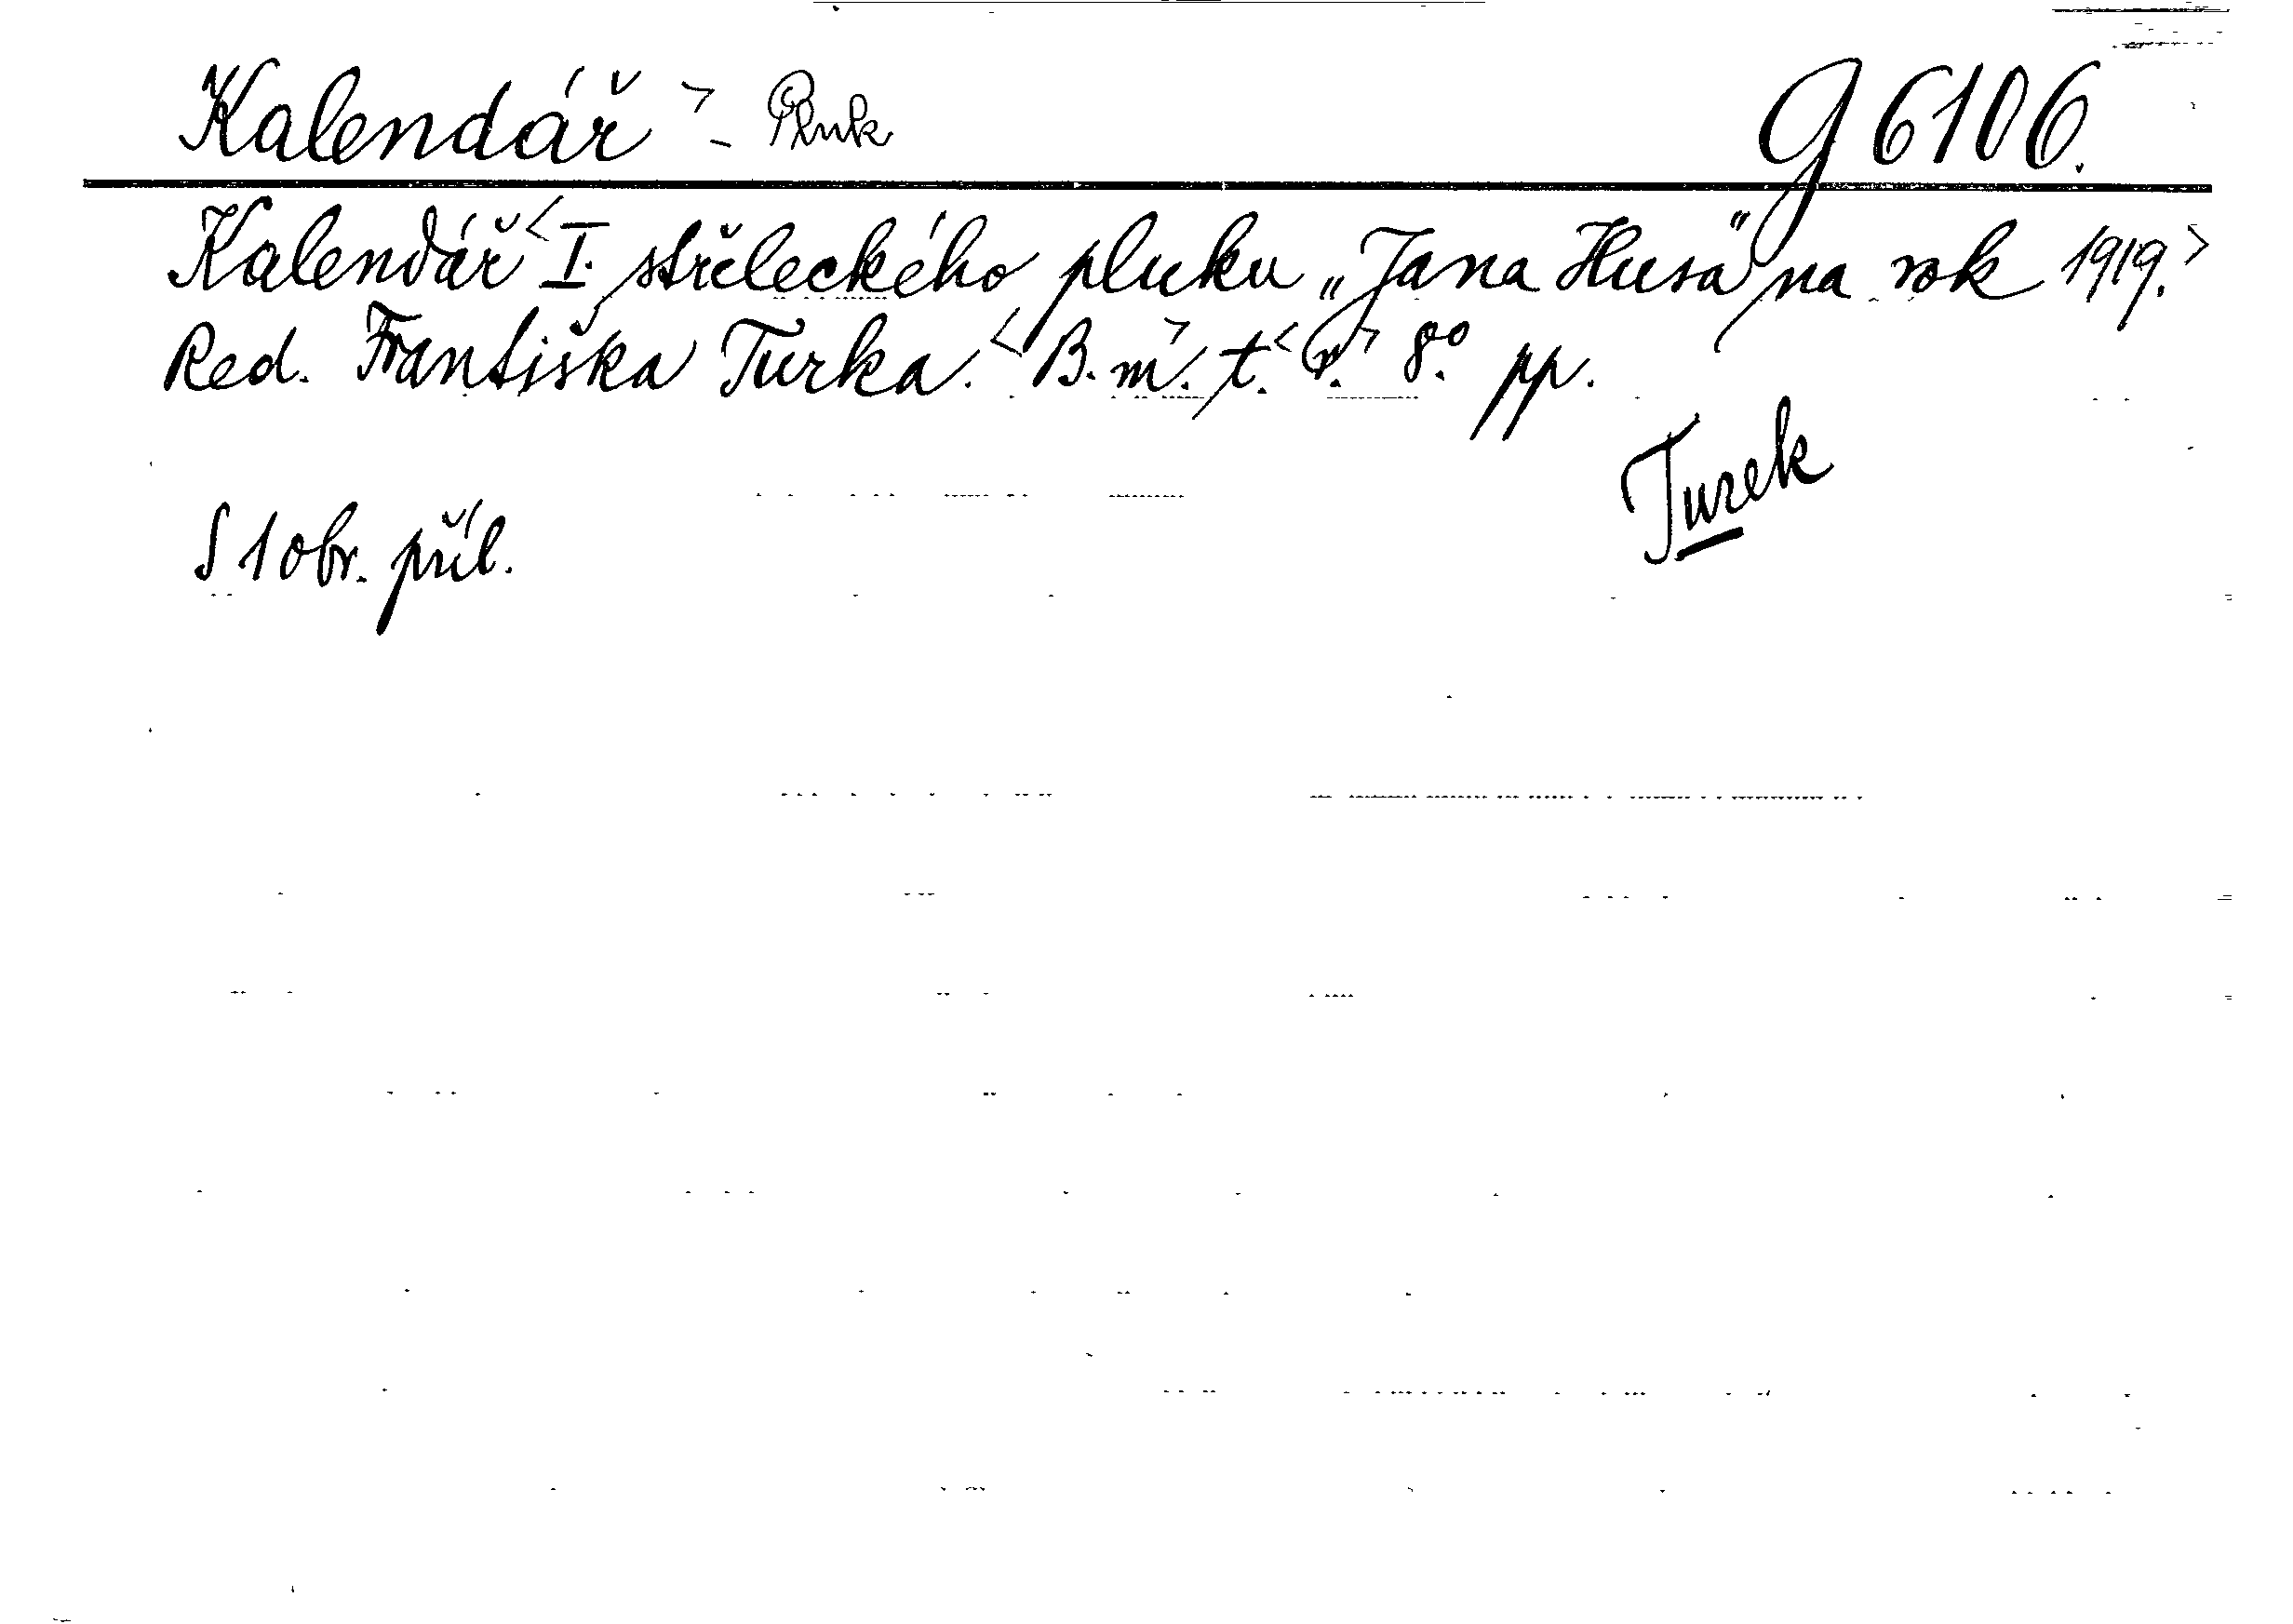 Kalendář > - Pluk G 6106.
Kalendář < I. střeleckého pluku „Jana Husa" na rok 1919. >
Red. Františka Turka. < B. m. > t. < r. > 8.° pp.
Turek
S 1 obr. příl.